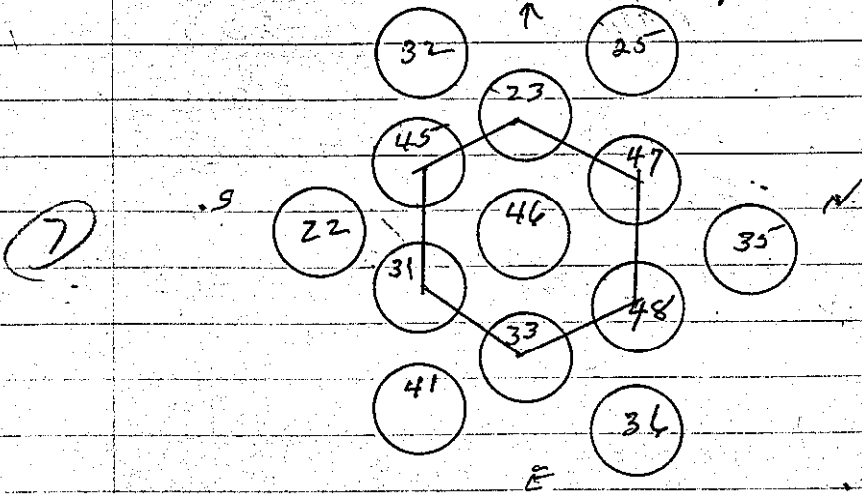 ↑
32 25
23
45 47
7 S 22 46 35 N
31 48
33
41 36
E